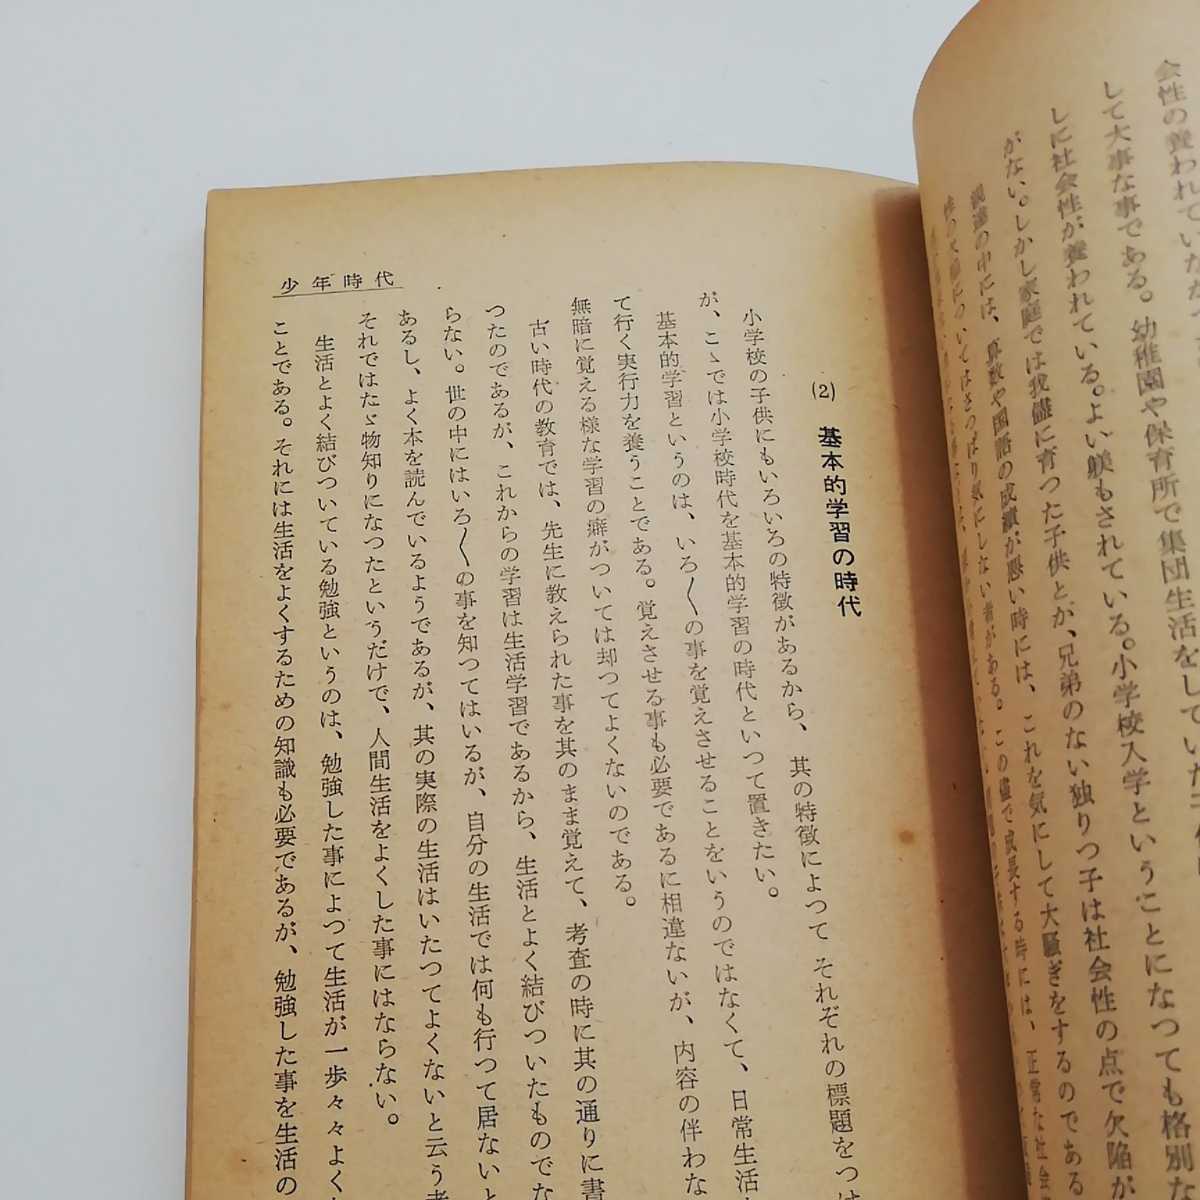 会性の養われていな
して大事な事である。幼稚園や保育所で集団生活をしていた
しに社会性が養われている。よい躾もされている。小学校入学ということになつても格別
がない。しかし家庭では我儘に育つた子供とか、兄弟のない独りつ子は社会性の点で欠陥が
親達の中には、算数や国語の成績が悪い時には、これを気にして大騒ぎをするのである
についてはさつぱり気にしない者がある。この儘で成長する時には、正常な社会
少年時代
(2) 基本的学習の時代
小学校の子供にもいろいろの特徴があるから、其の特徴によつて それぞれの標題をつけ
が、こゝでは小学校時代を基本的学習の時代といつて置きたい。
基本的学習というのは、いろ〳〵の事を覚えさせることをいうのではなくて、日常生活
て行く実行力を養うことである。覚えさせる事も必要であるに相違ないが、内容の伴わな
無暗に覚える様な学習の癖がついては却つてよくないのである。
古い時代の教育では、先生に教えられた事を其のまま覚えて、考査の時に其の通りに書
つたのであるが、これからの学習は生活学習であるから、生活とよく結びついたものでな
らない。世の中にはいろ〳〵の事を知つてはいるが、自分の生活では何も行つて居ないと
あるし、よく本を読んでいるようであるが、其の実際の生活はいたつてよくないと云う者
それではたゞ物知りになつたというだけで、人間生活をよくした事にはならない。
生活とよく結びついている勉強というのは、勉強した事によつて生活が一歩々々よく
ことである。それには生活をよくするための知識も必要であるが、勉強した事を生活の